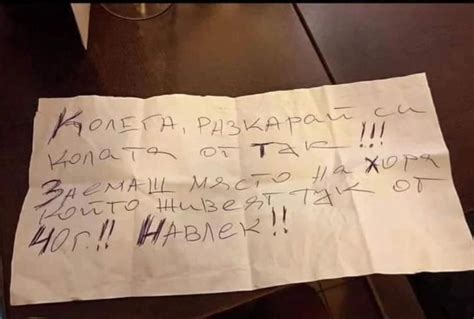 Колега, разкарай си
колата от так!!!
Заемаш място на хоря
който живеят так от
40г.!! Навлек!!